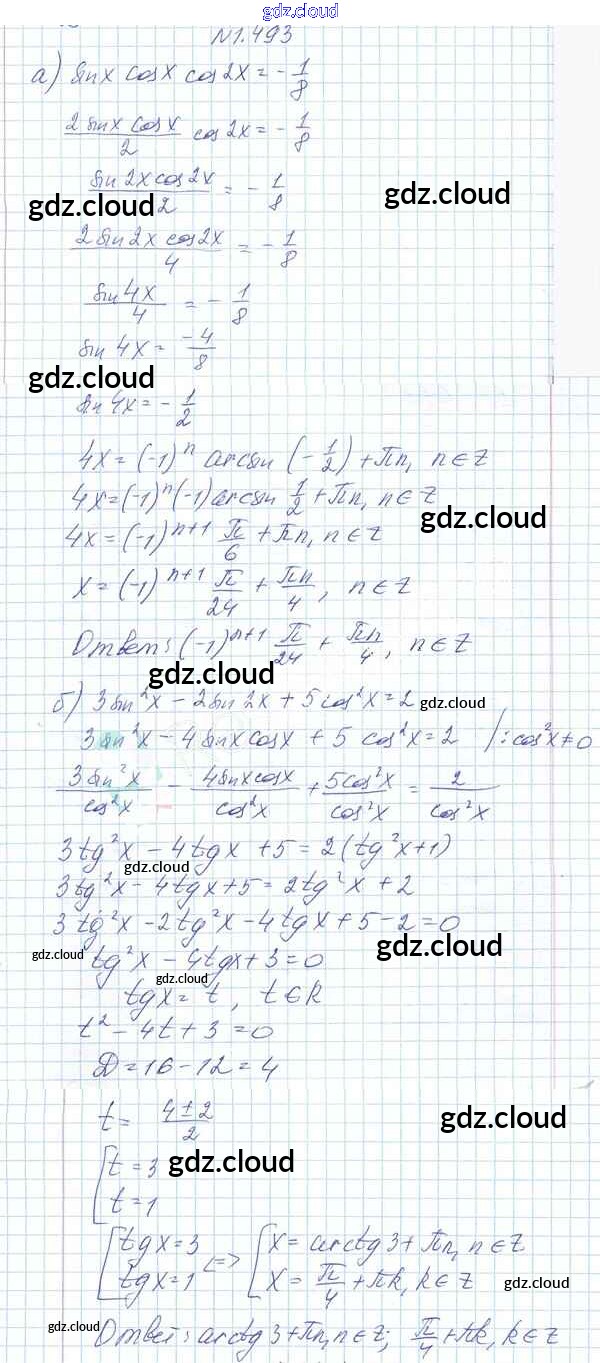 gdz.cloud
N1.493
а) sin x cos x cos 2x = - 1/8
2 sin x cos x / 2 cos 2x = - 1/8
sin 2x cos 2x / 2 = - 1/8
gdz.cloud gdz.cloud
2 sin 2x cos 2x / 4 = - 1/8
sin 4x / 4 = - 1/8
sin 4x = -4/8
gdz.cloud
sin 4x = - 1/2
4x = (-1)ⁿ arcsin (- 1/2) + πn, n ∈ Z
4x = (-1)ⁿ (-1) arcsin 1/2 + πn, n ∈ Z
gdz.cloud
4x = (-1)ⁿ⁺¹ π/6 + πn, n ∈ Z
x = (-1)ⁿ⁺¹ π/24 + πn/4, n ∈ Z
Ответ: (-1)ⁿ⁺¹ π/24 + πn/4, n ∈ Z
gdz.cloud
б) 3 sin²x - 2 sin 2x + 5 cos²x = 2 gdz.cloud
3 sin²x - 4 sin x cos x + 5 cos²x = 2 /: cos²x ≠ 0
3 sin²x / cos²x - 4 sin x cos x / cos²x + 5 cos²x / cos²x = 2 / cos²x
gdz.cloud gdz.cloud
3 tg²x - 4 tg x + 5 = 2 (tg²x + 1)
gdz.cloud
3 tg²x - 4 tg x + 5 = 2 tg²x + 2
3 tg²x - 2 tg²x - 4 tg x + 5 - 2 = 0
gdz.cloud
gdz.cloud tg²x - 4 tg x + 3 = 0
gdz.cloud
tg x = t, t ∈ R
t² - 4t + 3 = 0
D = 16 - 12 = 4
t = 4 ± 2 / 2
gdz.cloud
[ t = 3 gdz.cloud
t = 1
[ tg x = 3 <=> [ x = arctg 3 + πn, n ∈ Z
tg x = 1 x = π/4 + πk, k ∈ Z
gdz.cloud gdz.cloud
Ответ: arctg 3 + πn, n ∈ Z; π/4 + πk, k ∈ Z